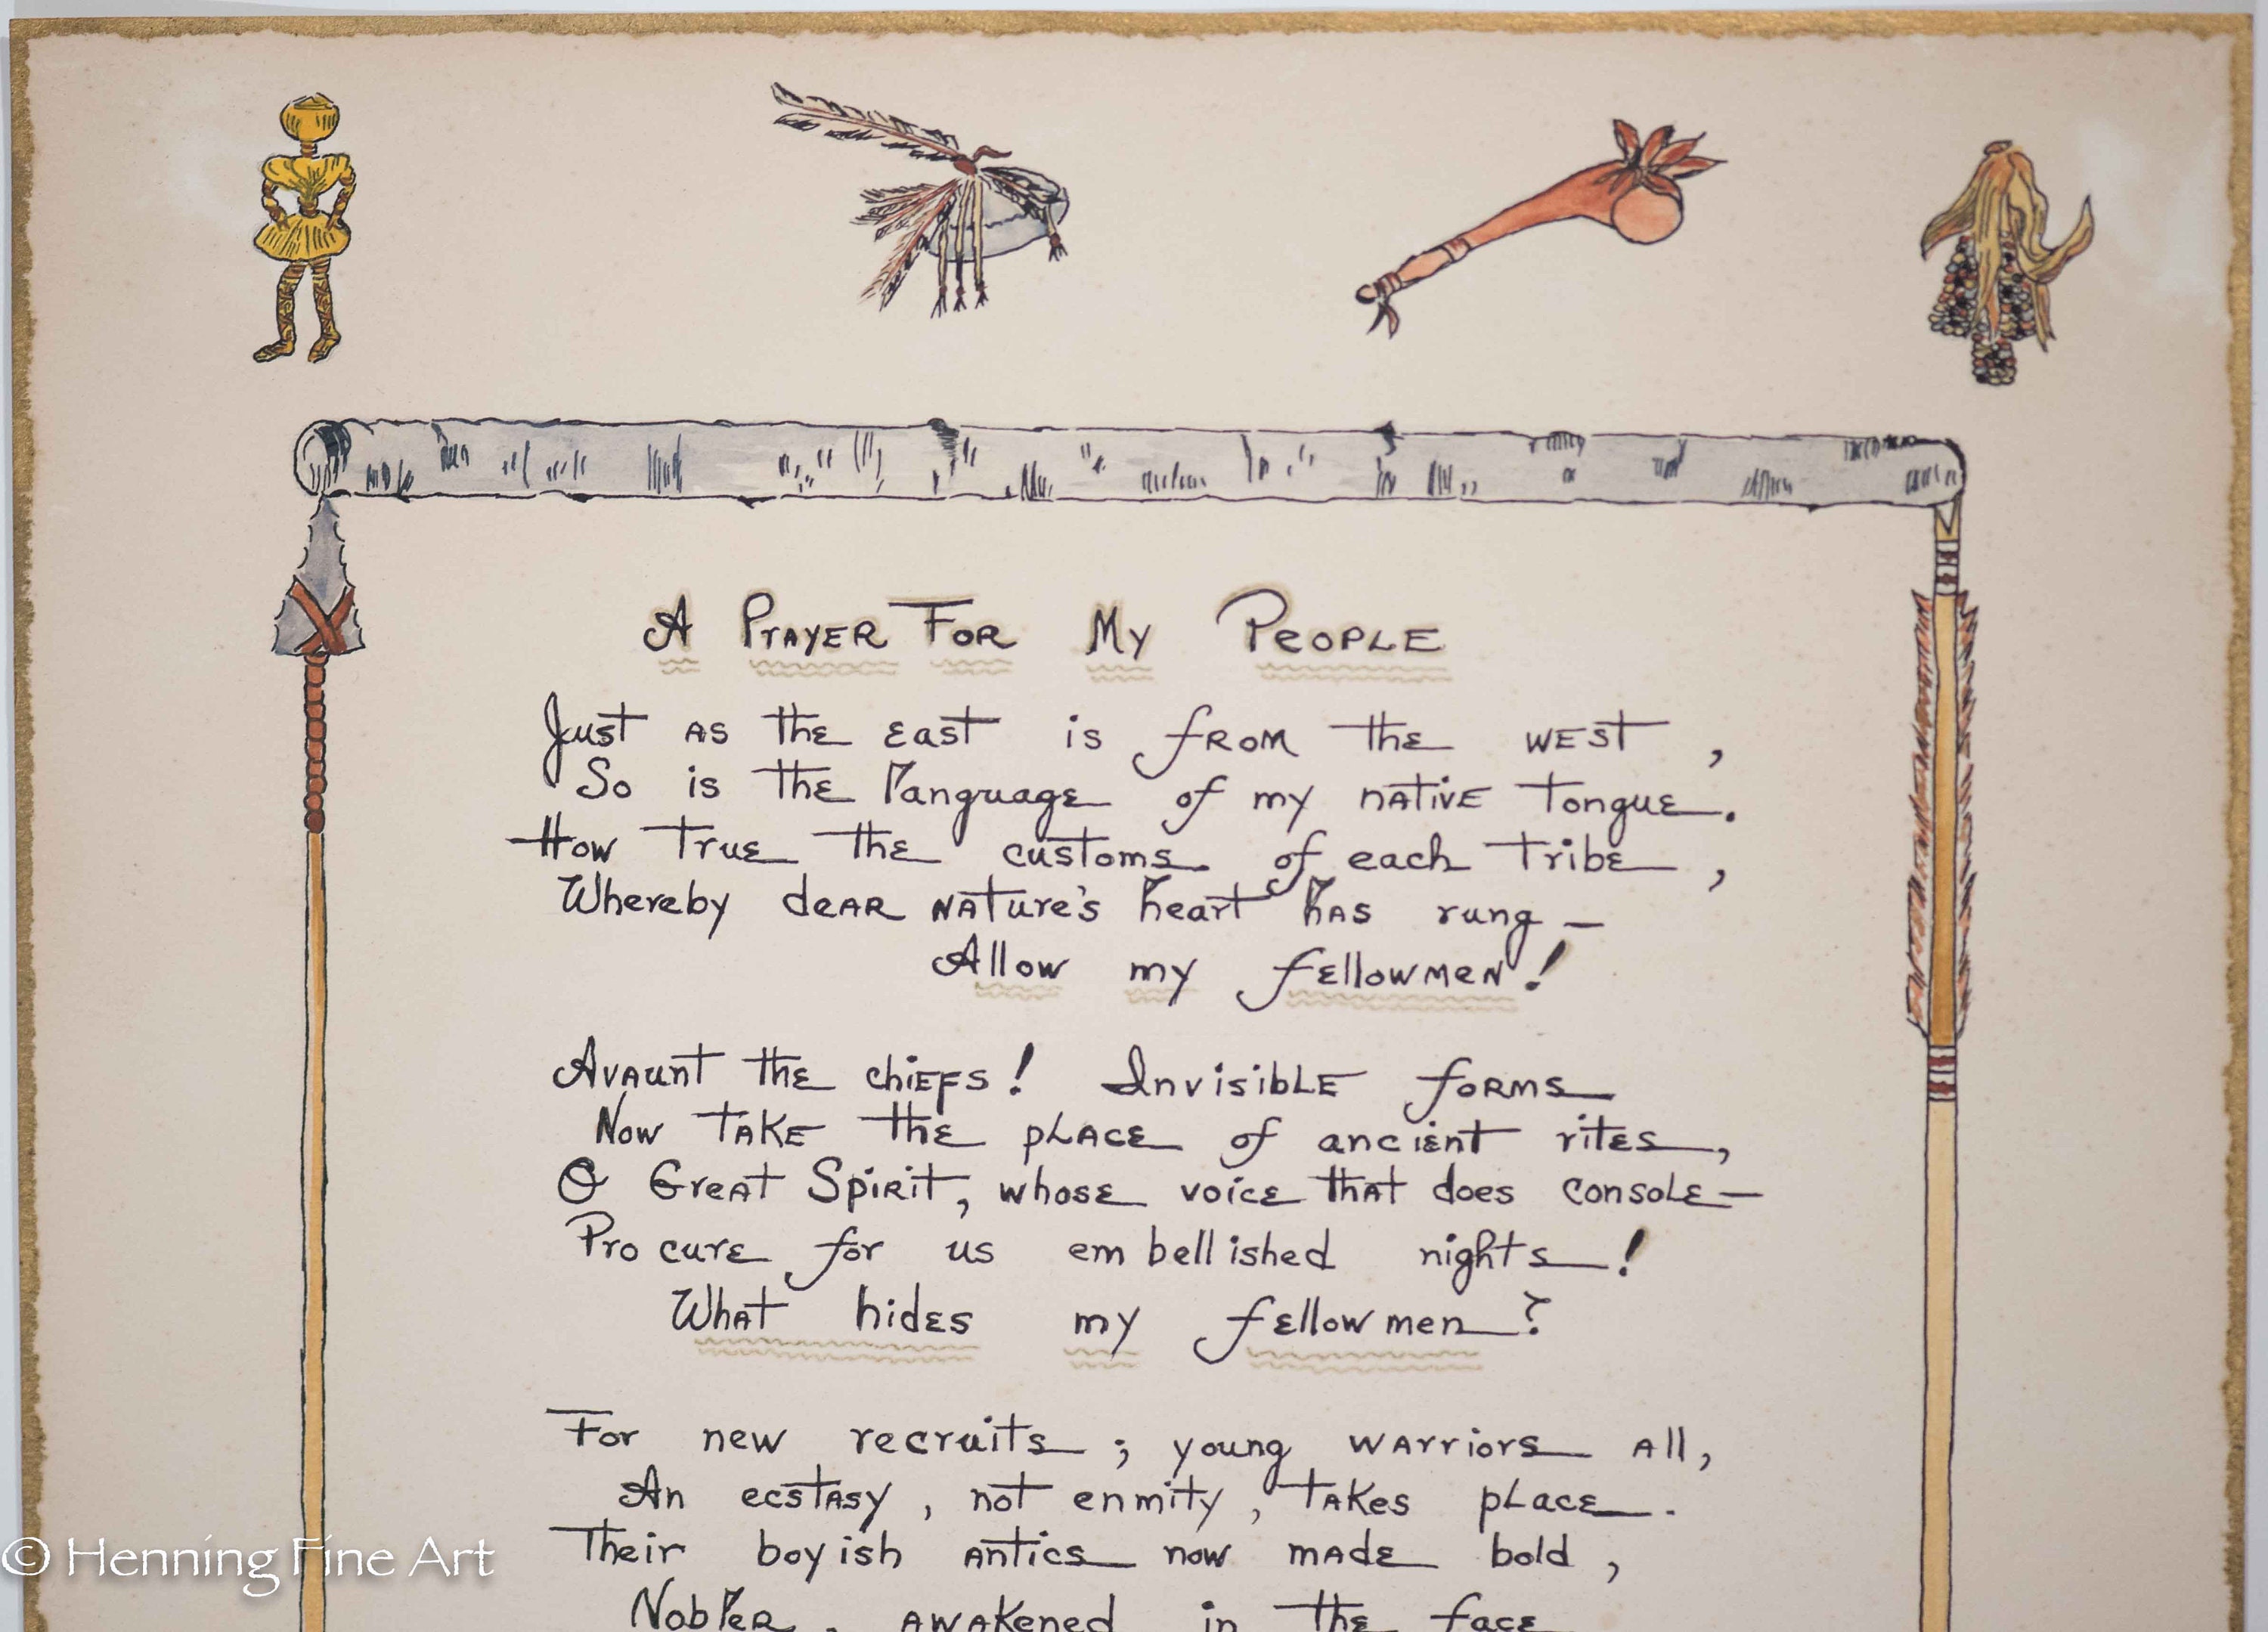 A Prayer For My People
Just as the east is from the west,
So is the language of my native tongue.
How true the customs of each tribe,
Whereby dear nature's heart has rung —
Allow my fellowmen!
Avaunt the chiefs! Invisible forms
Now take the place of ancient rites,
O Great Spirit, whose voice that does console—
Procure for us embellished nights!
What hides my fellowmen?
For new recruits; young warriors all,
An ecstasy, not enmity, takes place.
Their boyish antics now made bold,
Nobler, awakened in the face
© Henning Fine Art